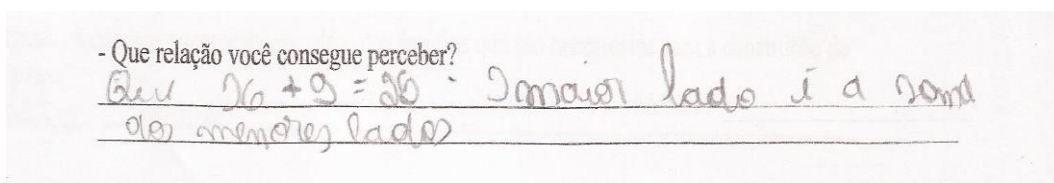 - Que relação você consegue perceber?
Que 16 + 9 = 25 . O maior lado é a soma
dos menores lados